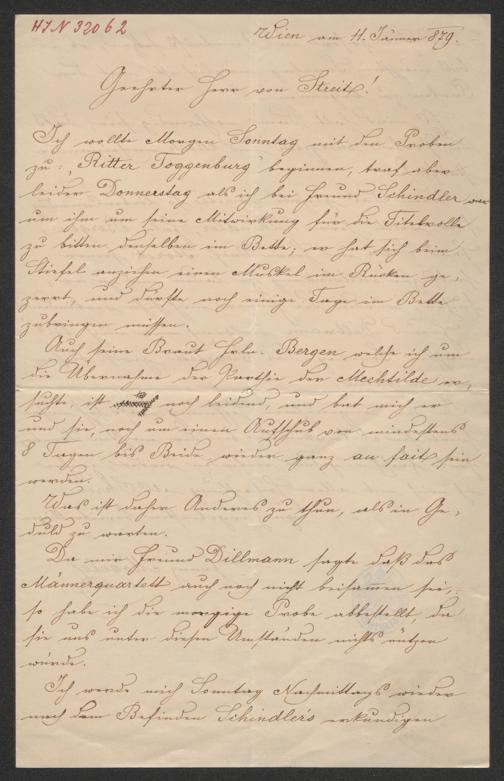 HIN 32062
Wien am 11. Jänner 879.
Geehrter Herr von Streit!
Ich wollte Morgen Sonntag mit den Proben
zu: „Ritter Toggenburg" beginnen, traf aber
leider Donnerstag als ich bei Freund Schindler war
um ihm um seine Mitwirkung für die Titelrolle
zu bitten denselben im Bette; er hat sich beim
Stiefel anziehen einen Muskel im Rücken ge-
zerrt, und dürfte noch einige Tage im Bette
zubringen müssen.
Auch seine Braut Frln. Bergen, welche ich um
die Übernahme der Parthie der Mechtilde er-
suchte, ist noch leidend, und bat mich er
und sie, noch um einen Aufschub von mindestens
8 Tagen bis Beide wieder ganz au fait sein
werden.
Was ist daher Anderes zu thun, als in Ge-
duld zu warten.
Da mir Freund Dillmann sagte daß das
Männerquartett auch noch nicht beisammen sei,
so habe ich die morgige Probe abbestellt, da
sie uns unter diesen Umständen nichts nützen
würde.
Ich werde mich Sonntag Nachmittags wieder
nach dem Befinden Schindler's erkundigen